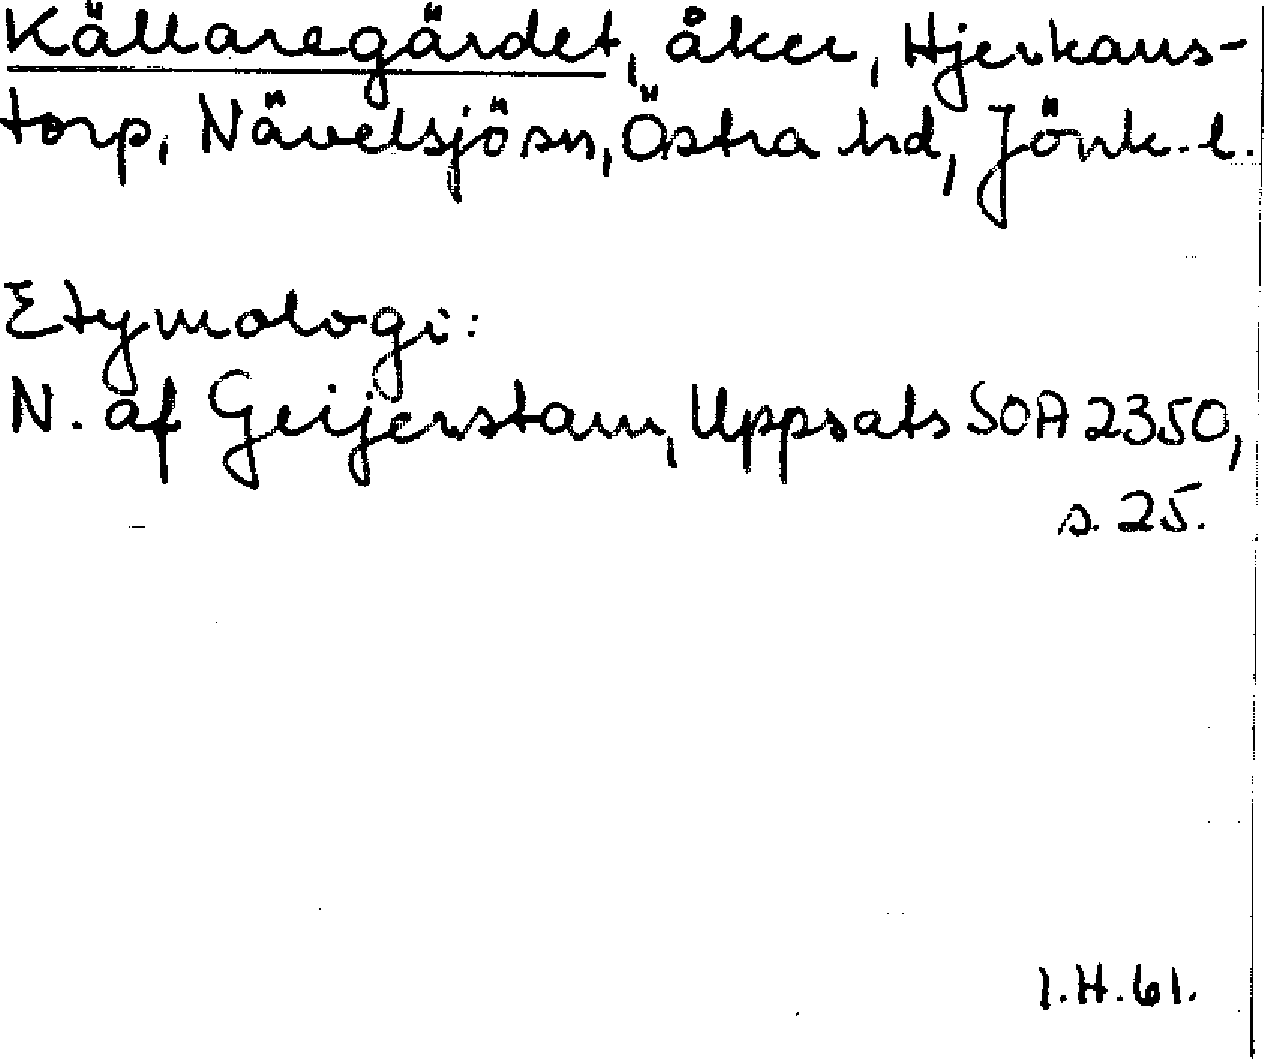 Källaregärdet, åker, Hjerkans-
torp, Nävelsjö sn, Östra hd, Jönk. l.
Etymologi:
N. af Geijerstam, Uppsats SOA 2350,
s. 25.
I.H.61.